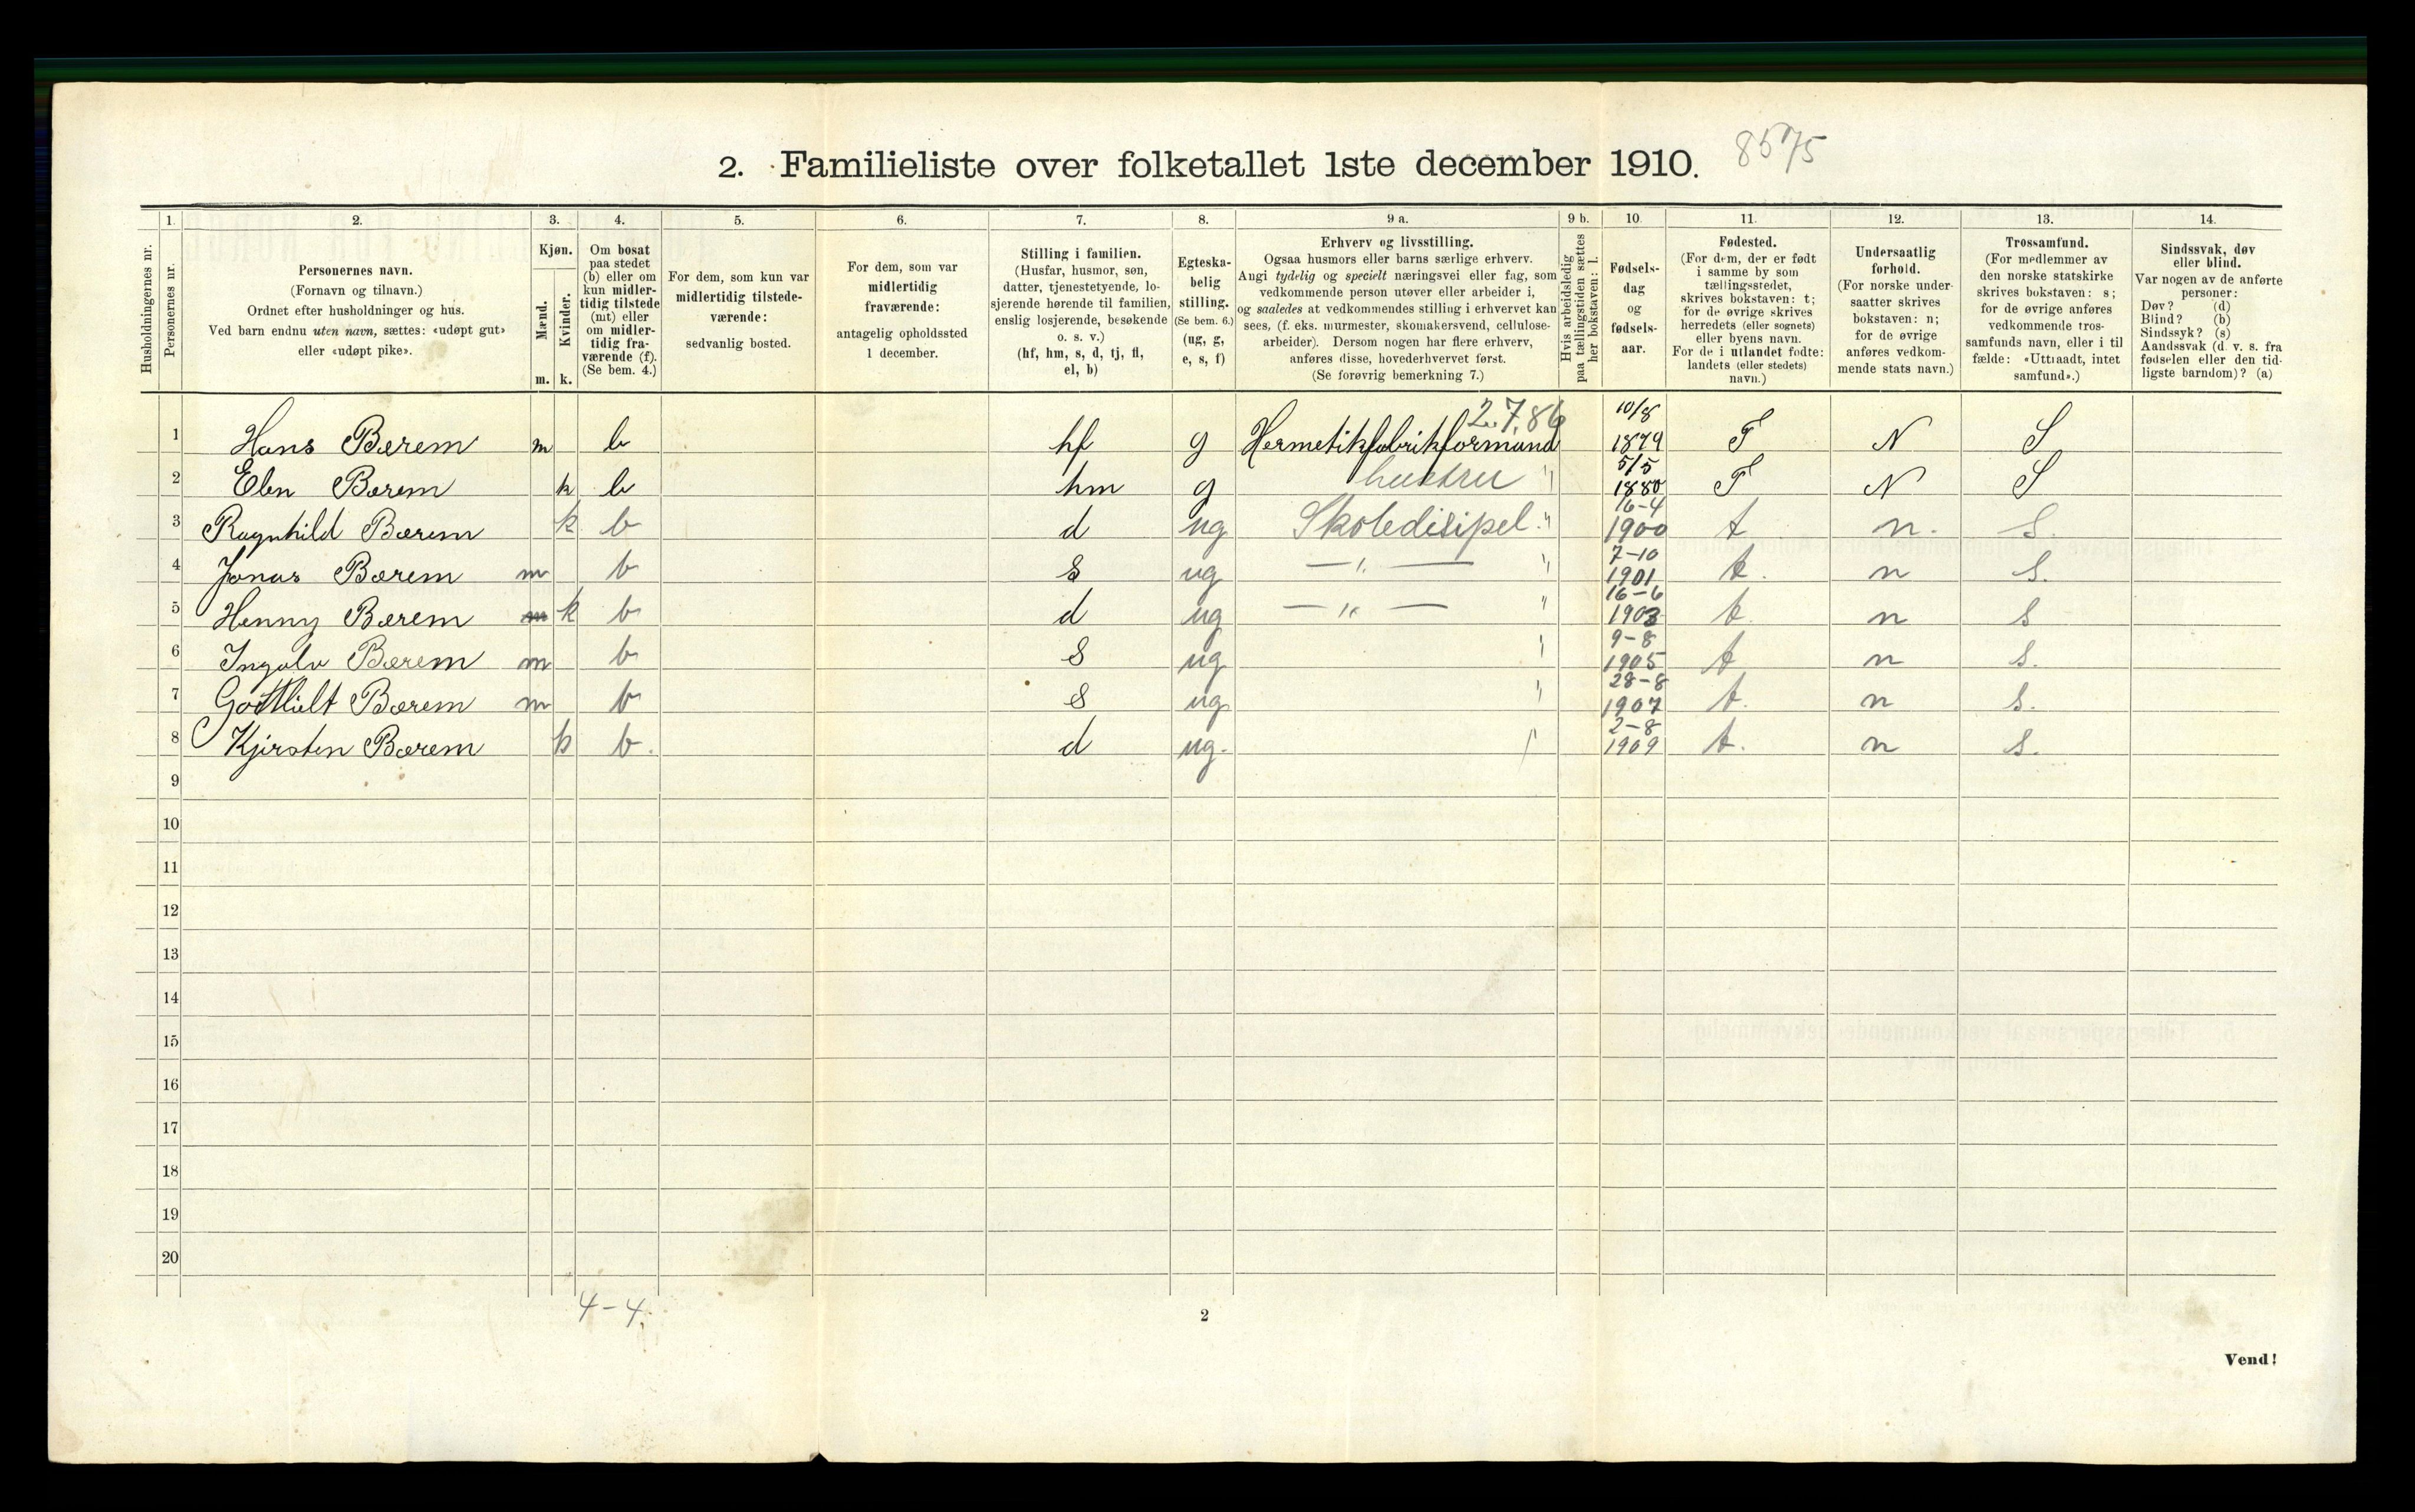 2. Familieliste over folketallet 1ste december 1910. 8575
Husholdningernes nr.
1.
Personernes nr.
2.
Personernes navn.
(Fornavn og tilnavn.)
Ordnet efter husholdninger og hus.
Ved barn endnu uten navn, sættes: «udøpt gut»
eller «udøpt pike».
3.
Kjøn.
Mænd.
Kvinder.
m. k.
4.
Om bosat
paa stedet
(b) eller om
kun midler-
tidig tilstede
(mt) eller
om midler-
tidig fra-
værende (f).
(Se bem. 4.)
5.
For dem, som kun var
midlertidig tilstede-
værende:
sedvanlig bosted.
6.
For dem, som var
midlertidig
fraværende:
antagelig opholdssted
1 december.
7.
Stilling i familien.
(Husfar, husmor, søn,
datter, tjenestetyende, lo-
sjerende hørende til familien,
enslig losjerende, besøkende
o. s. v.)
(hf, hm, s, d, tj, fl,
el, b)
8.
Egteska-
belig
stilling.
(Se bem. 6.)
(ug, g,
e, s, f)
9 a.
Erhverv og livsstilling.
Ogsaa husmors eller barns særlige erhverv.
Angi tydelig og specielt næringsvei eller fag, som
vedkommende person utøver eller arbeider i,
og saaledes at vedkommendes stilling i erhvervet kan
sees, (f. eks. murmester, skomakersvend, cellulose-
arbeider). Dersom nogen har flere erhverv,
anføres disse, hovederhvervet først.
(Se forøvrig bemerkning 7.)
9 b.
Hvis arbeidsledig
paa tællingstiden sættes
her bokstaven: l.
10.
Fødsels-
dag
og
fødsels-
aar.
11.
Fødested.
(For dem, der er født
i samme by som
tællingsstedet,
skrives bokstaven: t;
for de øvrige skrives
herredets (eller sognets)
eller byens navn.
For de i utlandet fødte:
landets (eller stedets)
navn.)
12.
Undersaatlig
forhold.
(For norske under-
saatter skrives
bokstaven: n;
for de øvrige
anføres vedkom-
mende stats navn.)
13.
Trossamfund.
(For medlemmer av
den norske statskirke
skrives bokstaven: s;
for de øvrige anføres
vedkommende tros-
samfunds navn, eller i til
fælde: «Uttraadt, intet
samfund».)
14.
Sindssvak, døv
eller blind.
Var nogen av de anførte
personer:
Døv? (d)
Blind? (b)
Sindssyk? (s)
Aandssvak (d. v. s. fra
fødselen eller den tid-
ligste barndom)? (a)
2.7.86
1 Hans Bærem m b hf g Hermetikfabrikformand 10/8 1879 T N S
2 Elen Bærem k b hm g hustru " 5/5 1880 T N S
3 Ragnhild Bærem k b d ug Skoledisipel " 16-4 1900 t n. S.
4 Jonas Bærem m b s ug —"— " 7-10 1901 t. n S.
5 Henny Bærem m k b d ug —"— " 16-6 1903 t. n S
6 Ingolv Bærem m b s ug " 9-8 1905 t n S.
7 Gottlielt Bærem m b s ug " 28-8 1907 t. n S.
8 Kjirsten Bærem k b. d ug. " 2-8 1909 t. n S.
9
10
11
12
13
14
15
16
17
18
19
20
4-4.
2
Vend!